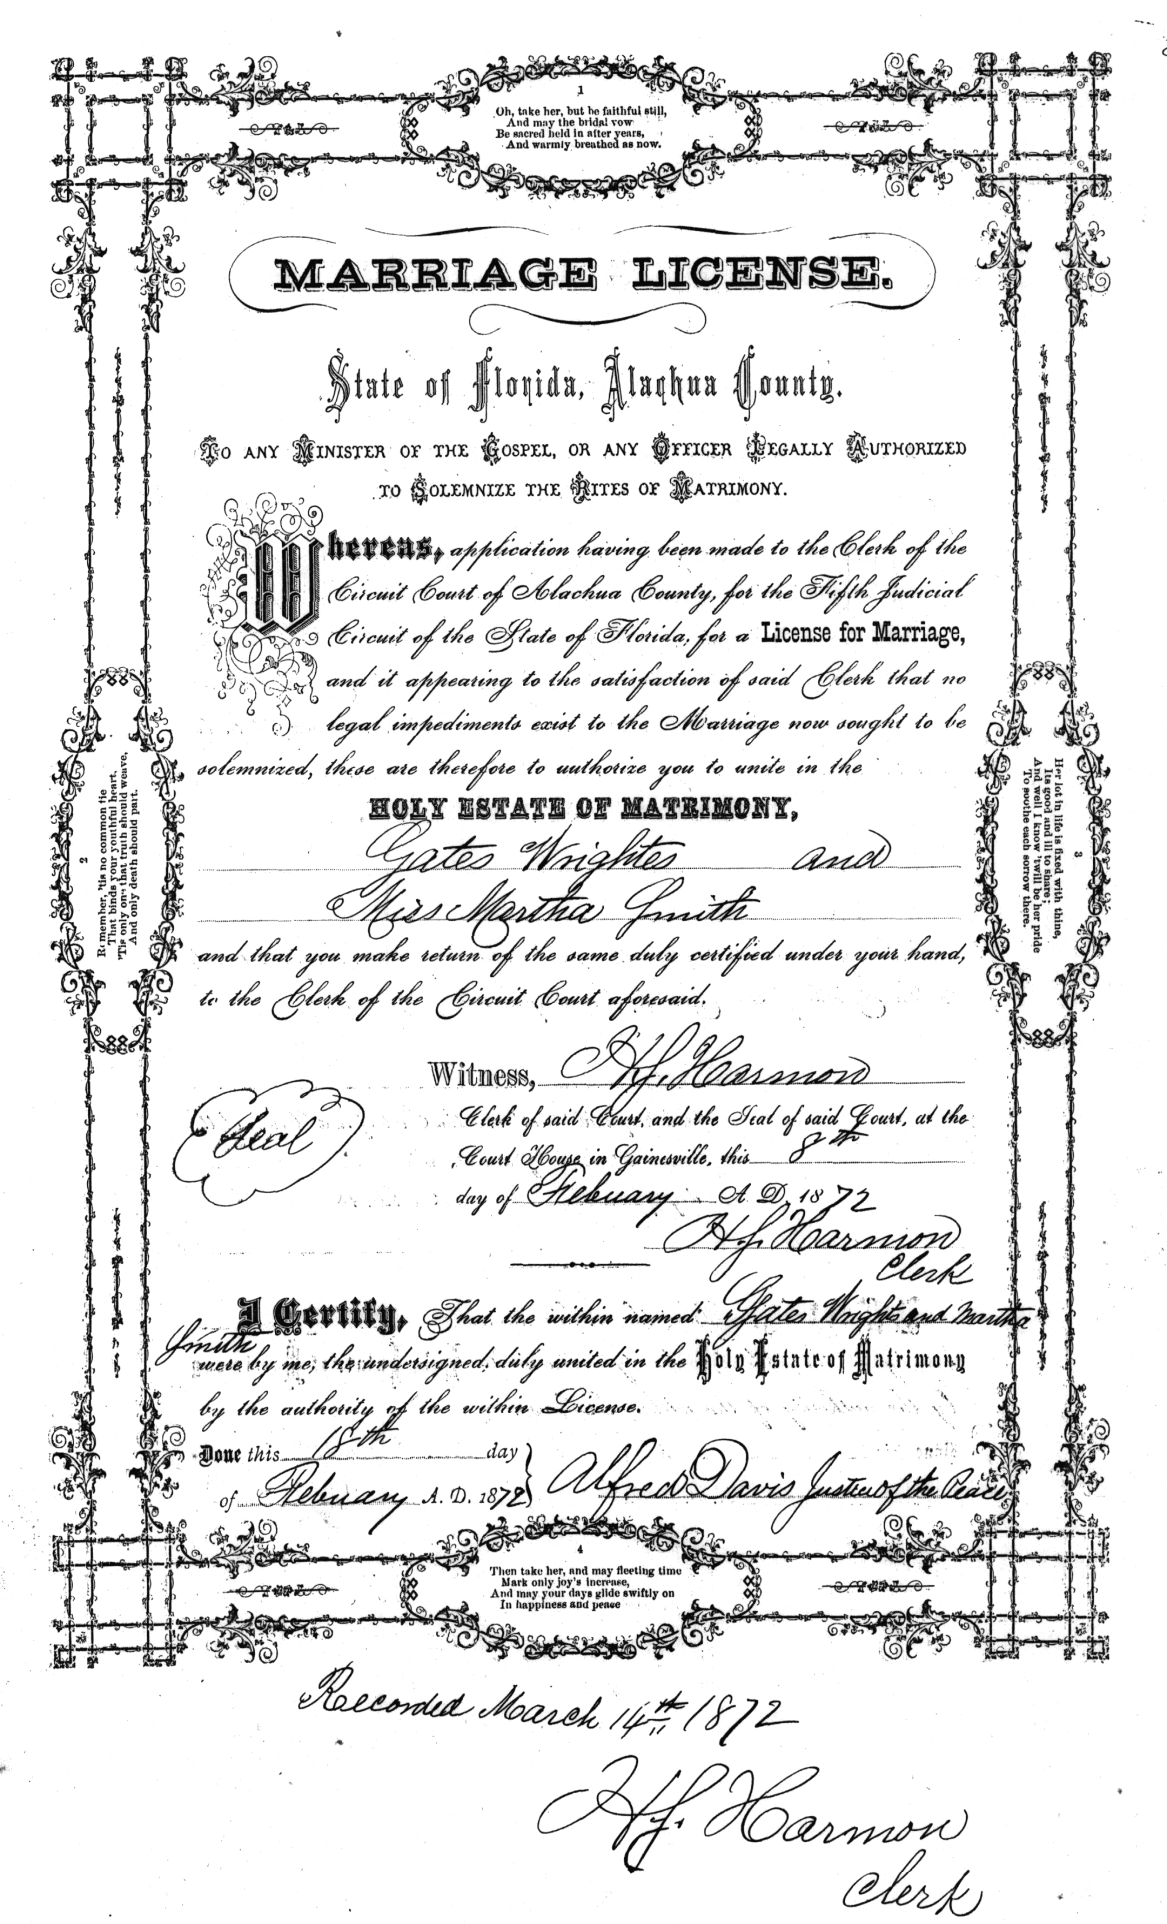 1
Oh, take her, but be faithful still,
And may the bridal vow
Be sacred held in after years,
And warmly breathed as now.
MARRIAGE LICENSE.
State of Florida, Alachua County.
TO ANY MINISTER OF THE GOSPEL, OR ANY OFFICER LEGALLY AUTHORIZED
TO SOLEMNIZE THE RITES OF MATRIMONY.
Whereas, application having been made to the Clerk of the
Circuit Court of Alachua County, for the Fifth Judicial
Circuit of the State of Florida, for a License for Marriage,
and it appearing to the satisfaction of said Clerk that no
legal impediments exist to the Marriage now sought to be
solemnized, these are therefore to authorize you to unite in the
HOLY ESTATE OF MATRIMONY,
Gates Wrightes and
Miss Martha Smith
and that you make return of the same duly certified under your hand,
to the Clerk of the Circuit Court aforesaid.
2
Remember, 'tis no common tie
That binds your youthful heart,
'Tis only one that truth should weave,
And only death should part.
3
Her lot in life is fixed with thine,
Its good and ill to share;
And well I know 'twill be her pride
To soothe each sorrow there.
Witness, H.J. Harmon
Seal
Clerk of said Court, and the Seal of said Court, at the
Court House in Gainesville, this 8th
day of Febuary A. D. 1872
H.J. Harmon
Clerk
I Certify, That the within named Gates Wrights and Martha
Smith
were by me, the undersigned, duly united in the Holy Estate of Matrimony
by the authority of the within License.
Done this 18th day
of Febuary A. D. 1872 Alfred Davis Justice of the Peace
4
Then take her, and may fleeting time
Mark only joy's increase,
And may your days glide swiftly on
In happiness and peace
Recorded March 14th 1872
H.J. Harmon
Clerk